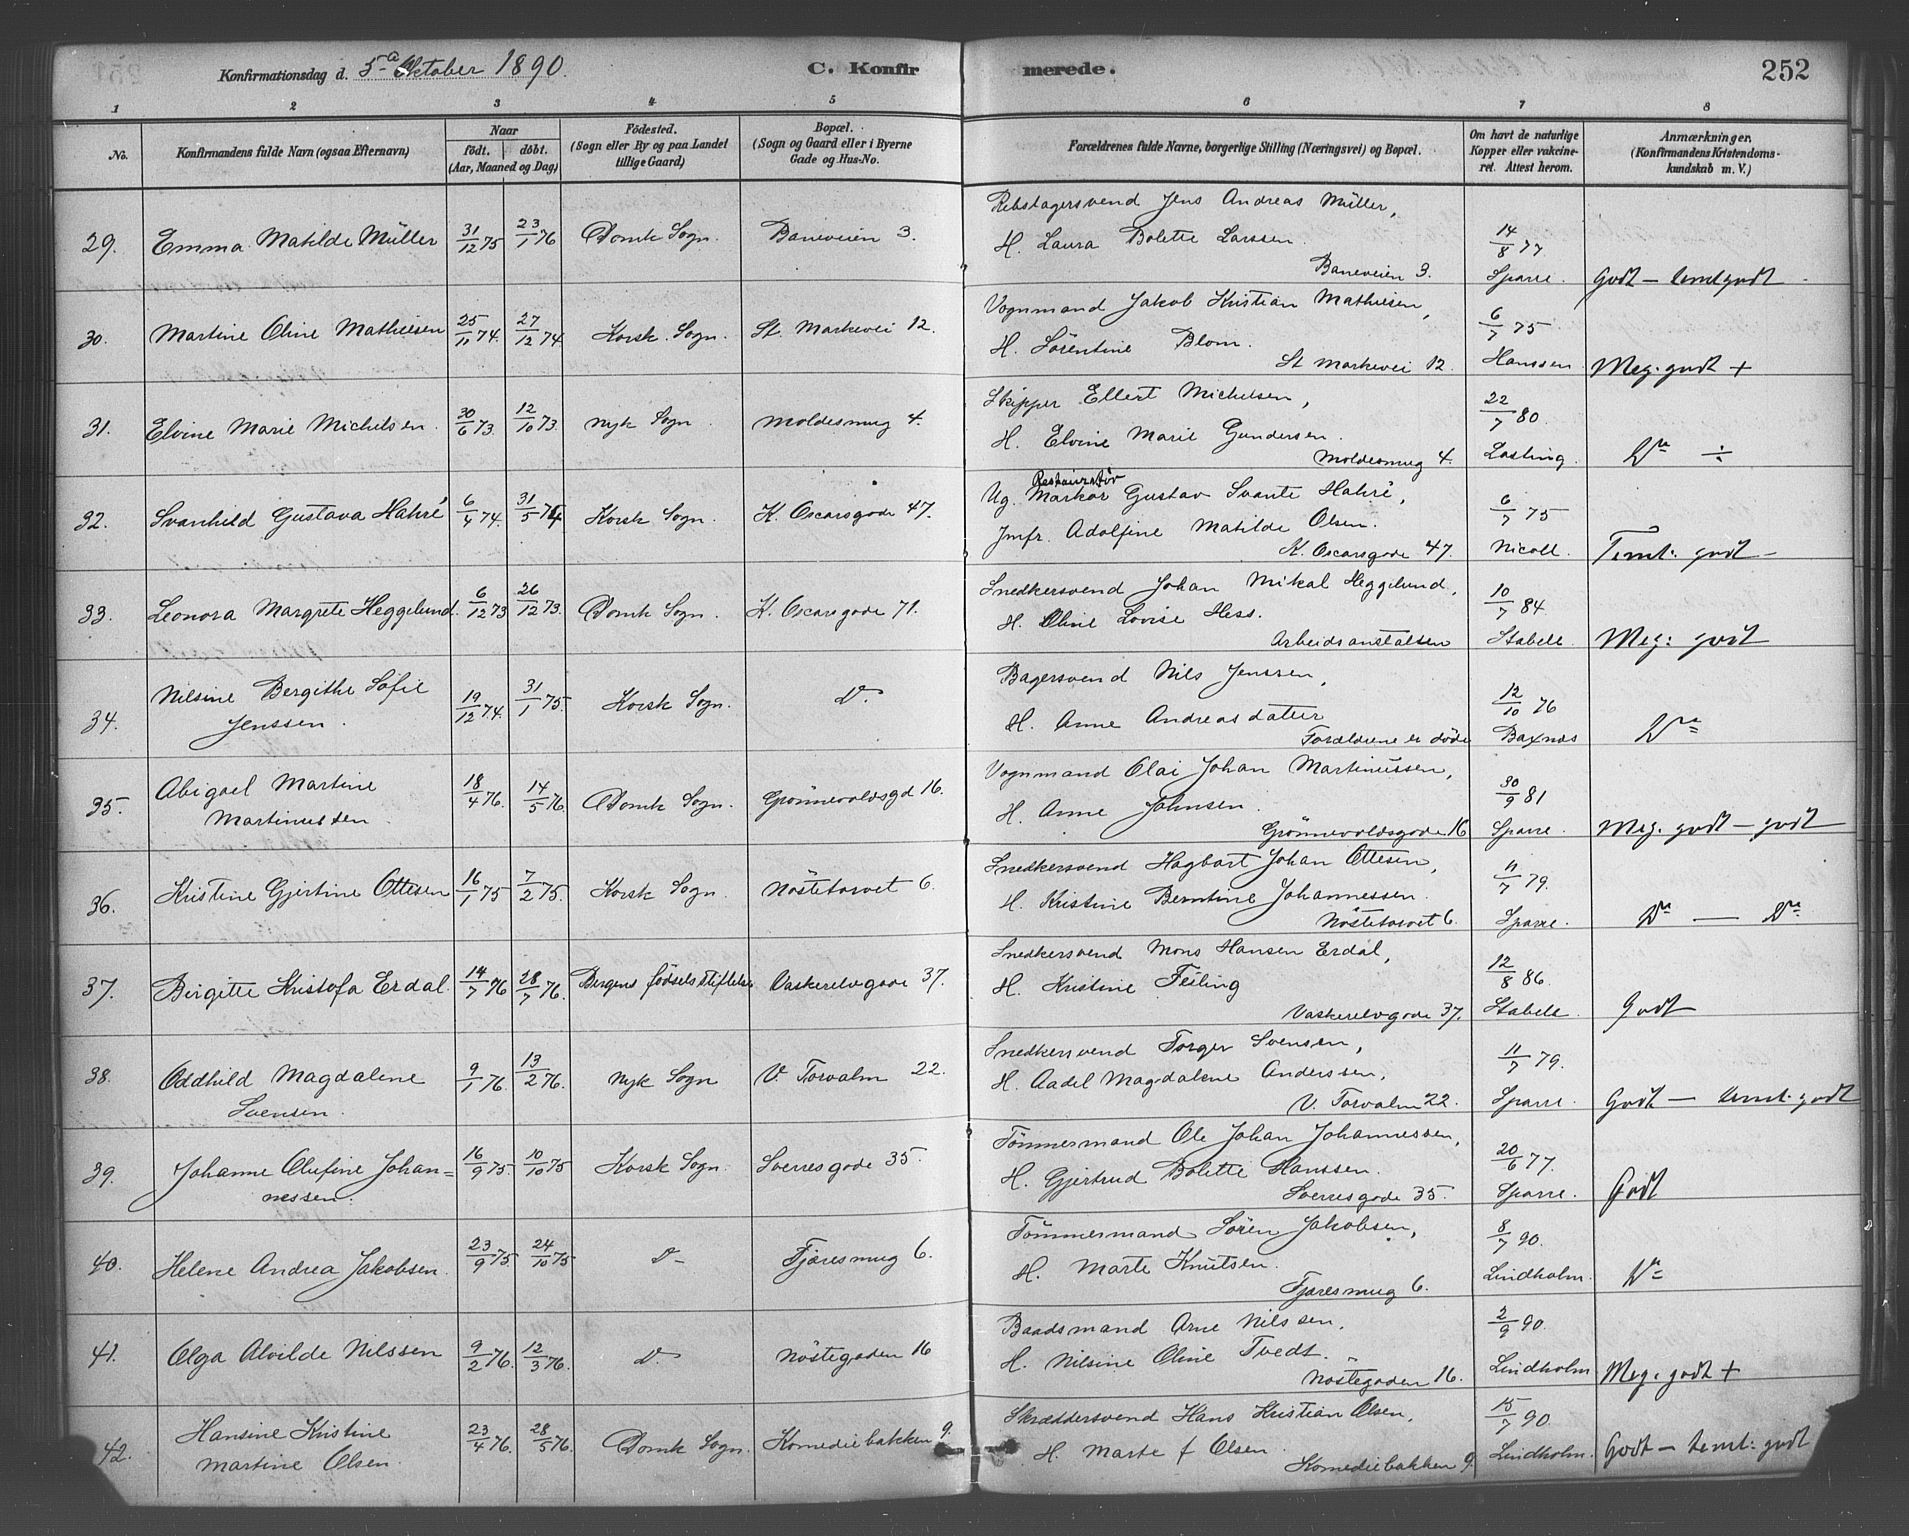 Konfirmationsdag d. 5te Oktober 1890.
C. Konfirmerede.
252
1 2 3 4 5 6 7 8
No.
Konfirmandens fulde Navn (ogsaa Efternavn)
Naar
födt. döbt.
(Aar, Maaned og Dag)
Födested.
(Sogn eller By og paa Landet
tillige Gaard)
Bopæl.
(Sogn og Gaard eller i Byerne
Gade og Hus-No.
Forældrenes fulde Navne, borgerlige Stilling (Næringsvei) og Bopæl.
Om havt de naturlige
Kopper eller vakcine-
ret. Attest herom.
Anmærkninger.
(Konfirmandens Kristendoms-
kundskab m. V.)
29. Emma Matilde Müller 31/12 75 23/1 76 Domk Sogn. Baneveien 3.
Rebslagersvend Jens Andreas Müller,
H. Laura Bolette Larssen.
Baneveien 3.
14/8 77
Sparre. Godt – temt godt
30. Martine Oline Mathiesen 25/11 74. 27/12 74 Korsk. Sogn. St. Markevei 12.
Vognmand Jakob Kristian Mathiesen,
H. Sörentine Blom.
St Markevei 12.
6/7 75
Hanssen Meg. godt +
31. Elvine Marie Michelsen. 30/6 73. 12/10 73. Nyk Sogn. Moldesmug 4.
Skipper Ellert Michelsen,
H. Elvine Marie Gundersen.
Moldesmug 4.
22/7 80.
Lasting. Do ÷
32. Svanhild Gustava Hahré 6/4 74. 31/5 74 Korsk Sogn. K. Oscarsgade 47.
Restauratör
Ug. Markör Gustav Svante Hahré,
Jmfr. Adolfine Matilde Olsen.
K. Oscarsgade 47.
6/7 75
Nicoll. Temt. godt –
33. Leonora Margrete Heggelund. 6/12 73 26/12 73. Domk Sogn. K. Oscarsgade 71.
Snedkersvend Johan Mikal Heggelund,
H. Oline Lovise Hess.
Arbeidsanstalten
10/7 84
Stabell Meg: godt
34. Nilsine Bergithe Sofie
Jenssen. 19/12 74. 31/1 75. Korsk Sogn. Do.
Bagersvend Nils Jenssen,
H. Anne Andreasdatter
Forældrene er döde
12/10 76
Baxnes Do
35. Abigael Martine
Martinussen. 18/4 76. 14/5 76 Domk Sogn. Grönnevoldsgd 16.
Vognmand Olai Johan Martinussen,
H. Anne Johnsen.
Grönnevoldsgade 16
30/9 81
Sparre. Meg. godt – godt
36. Kristine Gjertine Ottesen 16/1 75 7/2 75. Korsk Sogn. Nöstetorvet 6.
Snedkersvend Hagbart Johan Ottesen,
H. Kristine Berntine Johannessen.
Nöstetorvet 6.
11/7 79.
Sparre. Do — Do
37. Birgitte Kristofa Erdal. 14/7 76 28/7 76. Bergens födselsstiftelse Vaskerelvgade 37.
Snedkersvend Mons Hansen Erdal,
H. Kristine Feiling
Vaskerelvgade 37.
12/8 86
Stabell. Godt
38. Oddhild Magdalene
Svensen. 9/1 76. 13/2 76. Nyk Sogn V. Torvalm 22.
Snedkersvend Torger Svensen,
H. Aadel Magdalene Anderssen,
V. Torvalm 22.
11/7 79.
Sparre. Godt – temt. godt
39. Johanne Olufine Johan=
nessen. 16/9 75 10/10 75 Korsk Sogn. Sverresgade 35.
Tömmermand Ole Johan Johannessen,
H. Gjertrud Bolette Hanssen.
Sverresgade 35.
20/6 77.
Sparre. Godt
40. Helene Andrea Jakobsen. 23/9 75. 24/10 75 Do Fjæresmug 6.
Tömmermand Sören Jakobsen,
H. Marte Knutsen.
Fjæresmug 6.
8/7 90.
Lindholm. Do
41. Olga Alvilde Nilssen 9/2 76. 12/3 76. Do Nöstegaden 16
Baadsmand Arne Nilssen,
H. Nilsine Oline Tvedt.
Nöstegaden 16.
2/9 90.
Lindholm Meg. godt +
42. Hansine Kristine
Martine Olsen. 23/4 76. 28/5 76. Domk Sogn. Komediebakken 9.
Skræddersvend Hans Kristian Olsen,
H. Marte f Olsen.
Komediebakken 9.
15/7 90.
Lindholm. Godt – temt: godt